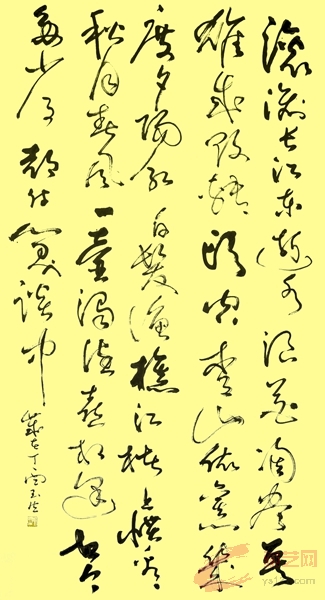 滚滚长江东逝水浪花淘尽英
雄成败转头空青山依旧几
度夕阳红白髮渔樵江渚上惯看
秋月春风一壶浊酒喜相逢古今
多少事都付笑谈中
岁在丁
艺网